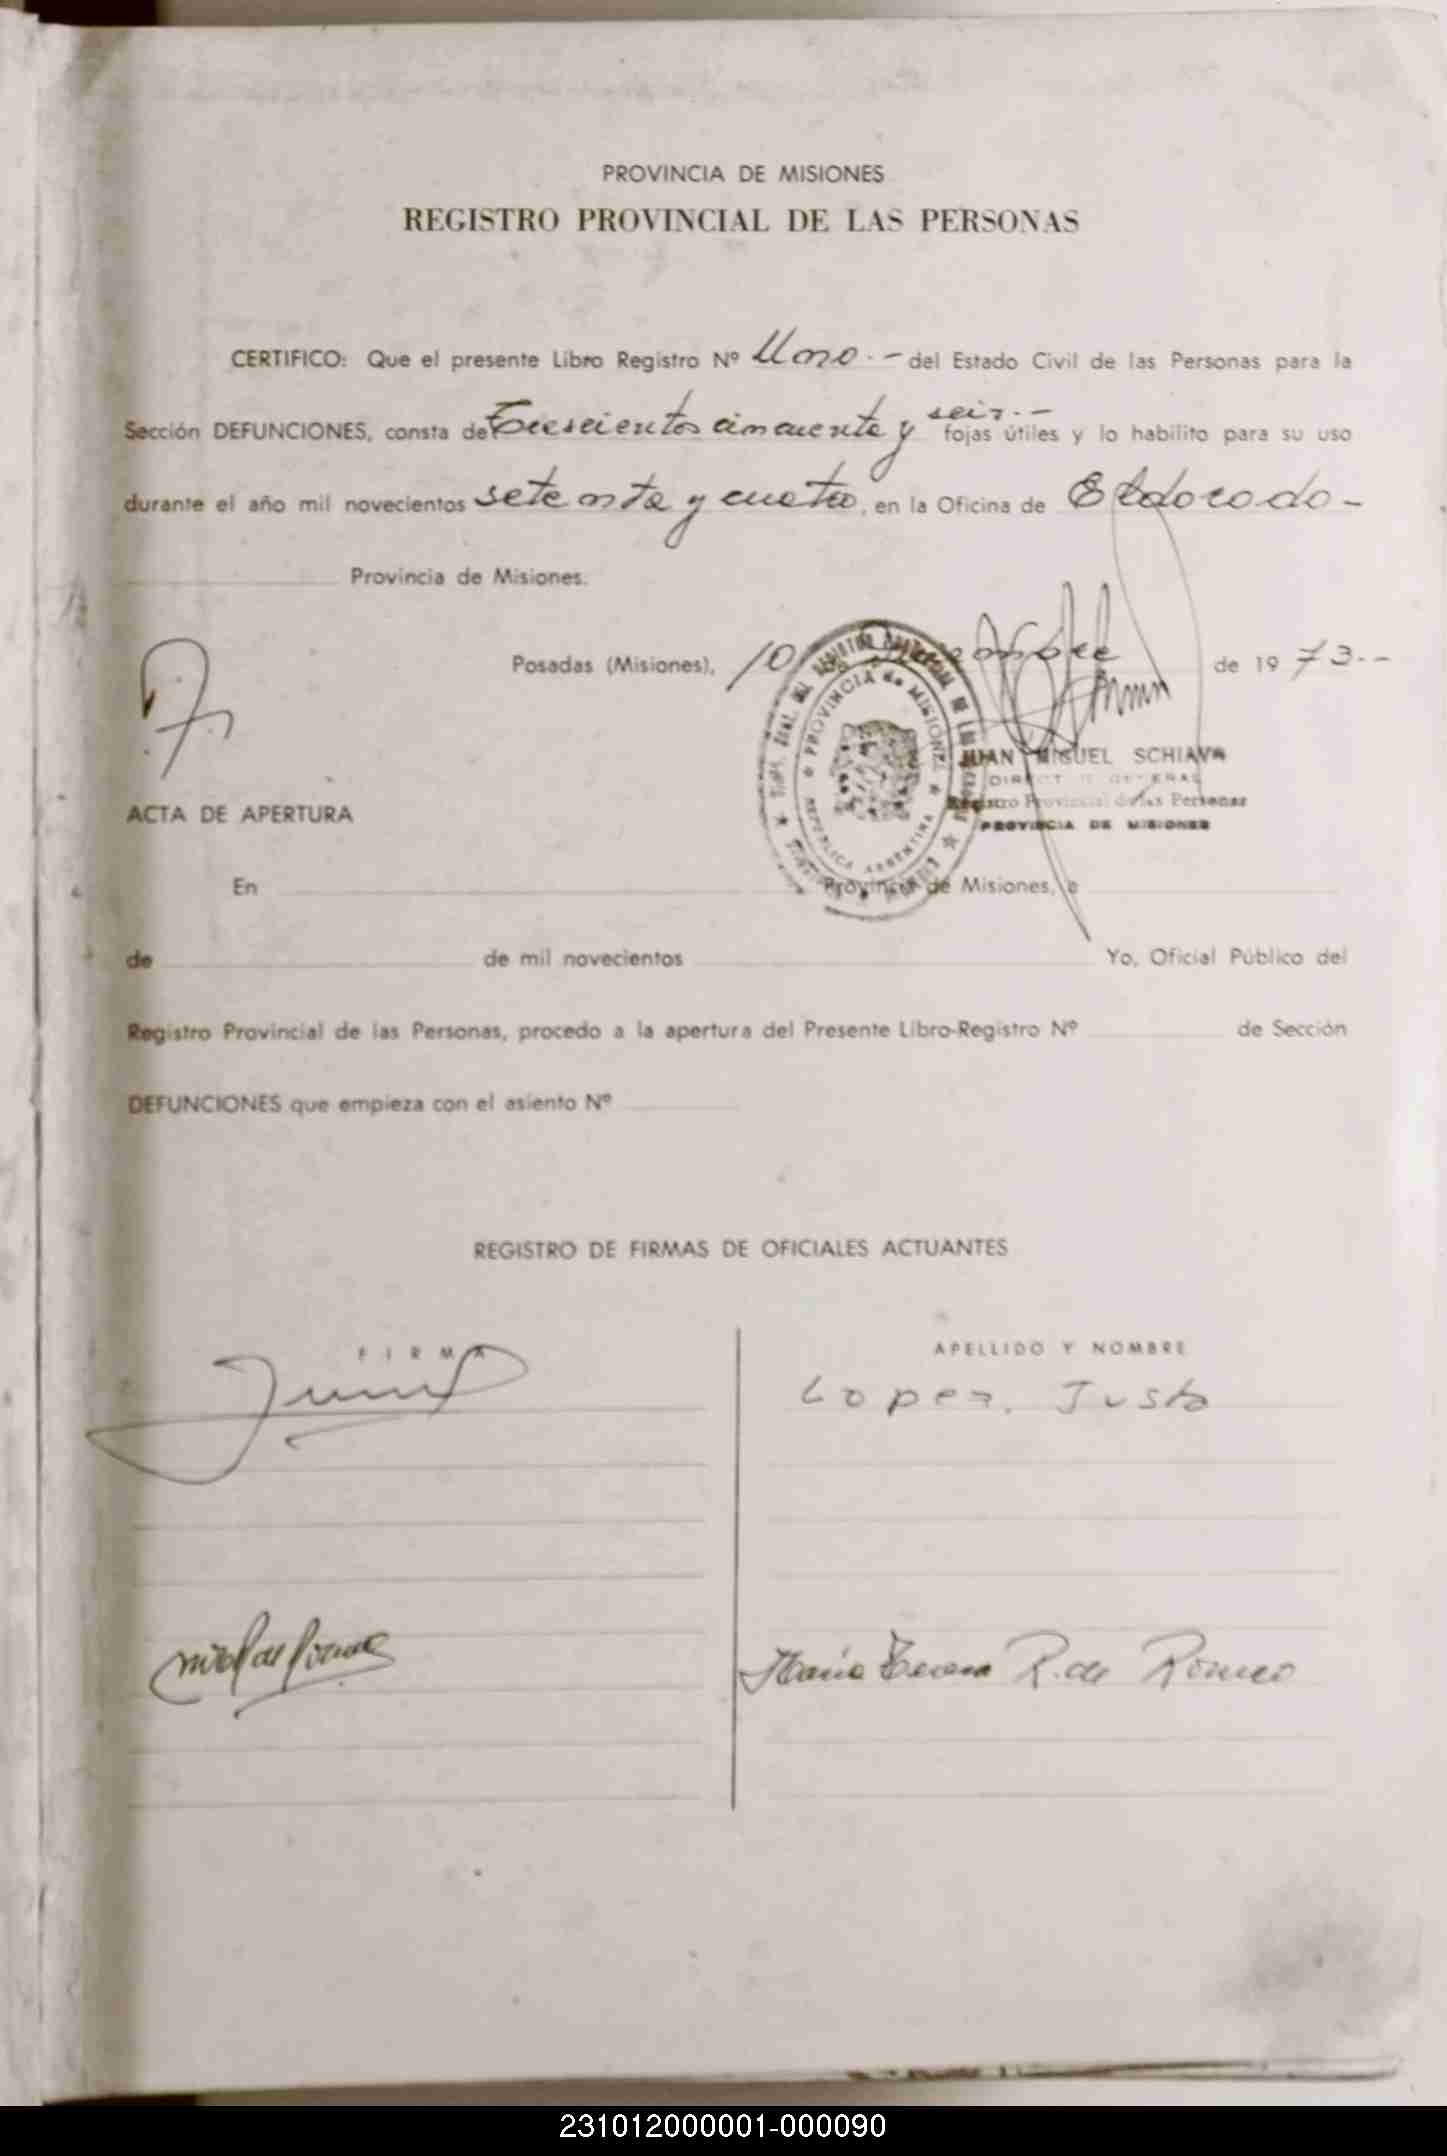 PROVINCIA DE MISIONES
REGISTRO PROVINCIAL DE LAS PERSONAS
CERTIFICO: Que el presente Libro Registro Nº Uno.- del Estado Civil de las Personas para la
seis.-
Sección DEFUNCIONES, consta de Trescientos cincuenta y fojas útiles y lo habilito para su uso
durante el año mil novecientos setenta y cuatro, en la Oficina de Eldorado-
Provincia de Misiones.
Posadas (Misiones), 10 de 1973.-
JUAN MIGUEL SCHIAVA
DIRECTOR GENERAL
Registro Provincial de las Personas
PROVINCIA DE MISIONES
PROVINCIA de MISIONES
REPUBLICA ARGENTINA
ACTA DE APERTURA
En Provincia de Misiones, a
de de mil novecientos Yo, Oficial Público del
Registro Provincial de las Personas, procedo a la apertura del Presente Libro-Registro Nº de Sección
DEFUNCIONES que empieza con el asiento Nº
REGISTRO DE FIRMAS DE OFICIALES ACTUANTES
FIRMA APELLIDO Y NOMBRE
Lopez, Justo
Maria Teresa R. de Romeo
231012000001-000090